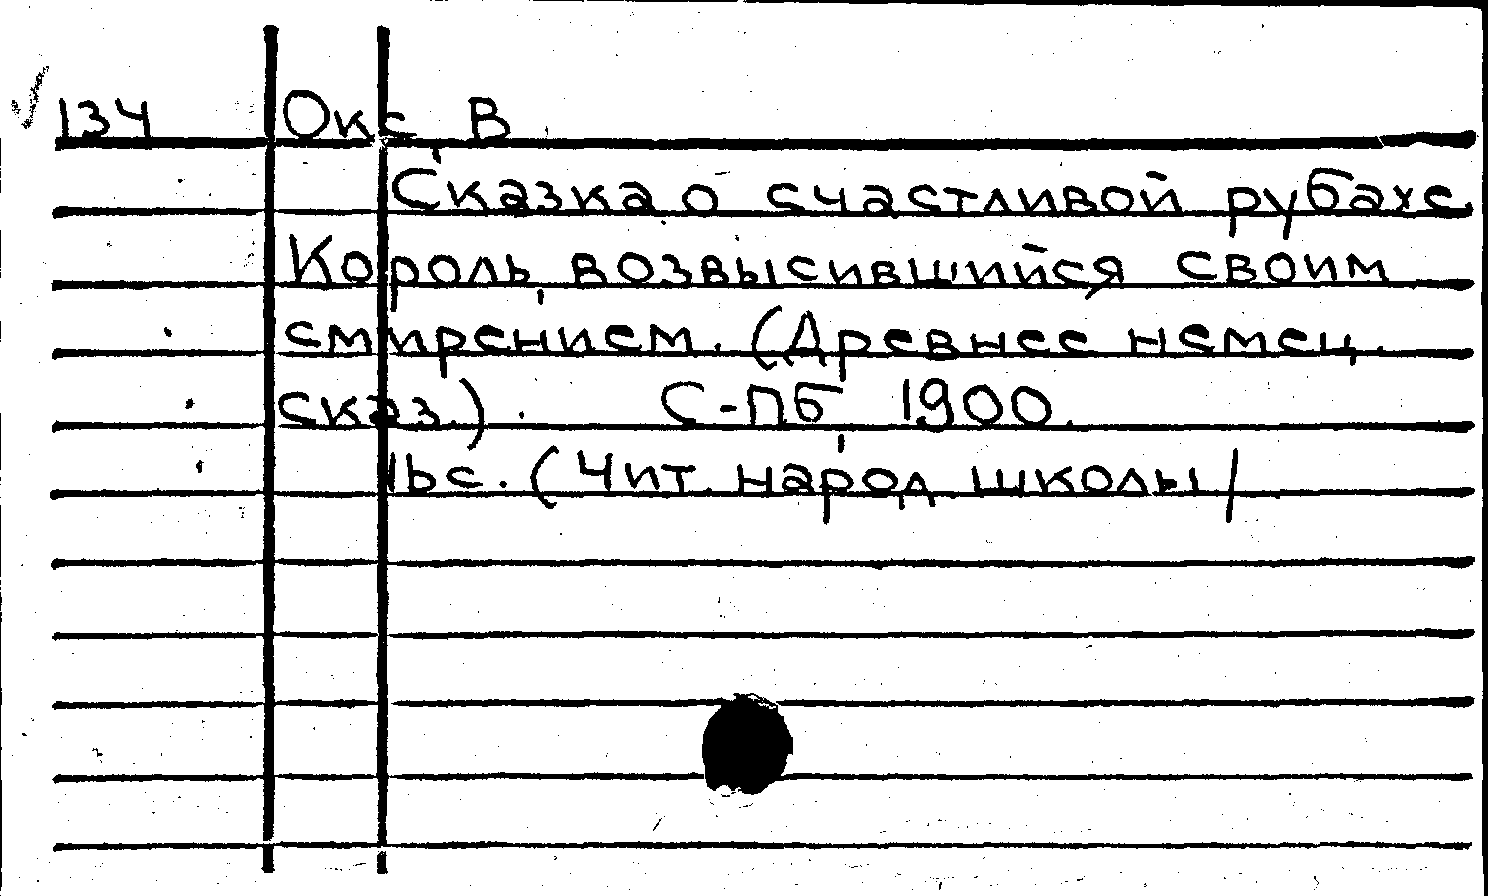 134 Окс, В
Сказка о счастливой рубахе.
Король, возвысившийся своим
смирением. (Древнее немец.
сказ.). С-Пб, 1900.
16с. (Чит. народ. школы/